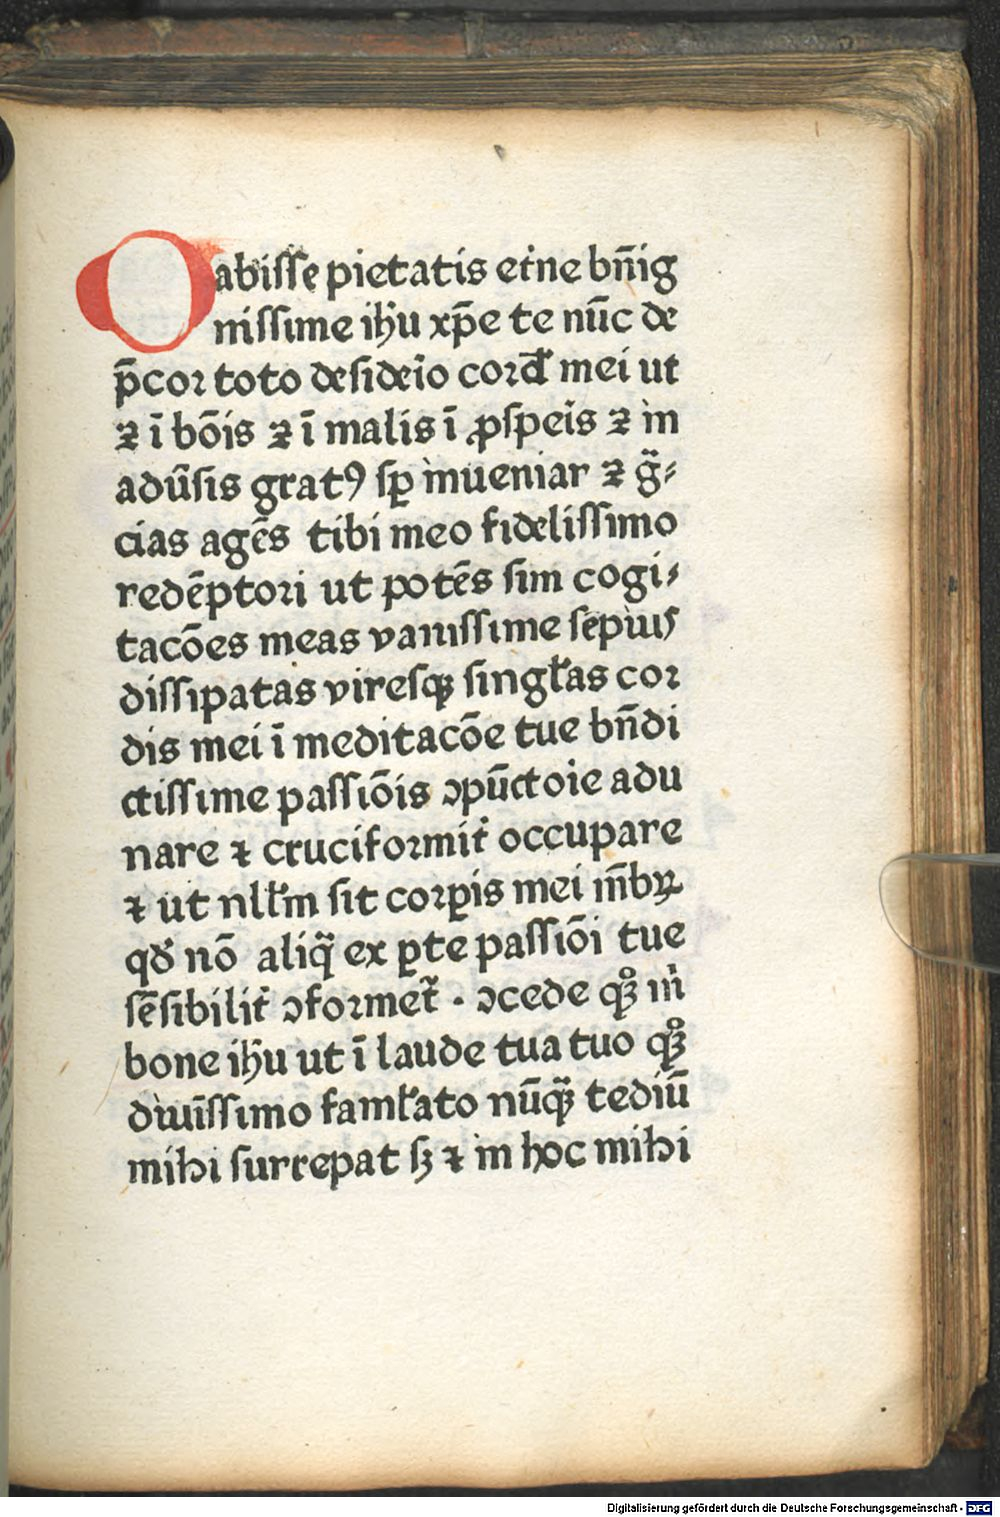 O abisse pietatis et̾ne bn̄ig
nissime ih̄u xp̄e te nūc de
p̄cor toto desideio̾ cordꝭ mei ut
⁊ ī bōis ⁊ ī malis ī ꝓspeis̾ ⁊ in
adūsis gratꝰ sꝑ inueniar ⁊ gᷓ⸗
cias agēs tibi meo fidelissimo
redēptori ut potēs sim cogi⸗
tacōes meas vanissime sepius
dissipatas viresqꝫ singl̾as cor
dis mei ī meditacōe tue bn̄di
ctissime passiōis ꝯpūctoie adu
nare ⁊ cruciformit̾ occupare
⁊ ut nll̾m sit corꝑis mei m̄bꝝ
qđ nō aliqᷓ ex ꝑte passiōi tue
sēsibilit̾ ꝯformet᷑ · ꝯcede qꝫͦ mͥ
bone ih̄u ut ī laude tua tuo qꝫͦ
diuīssimo faml̾ato nūqᷓꝫ tediū
mihi surrepat sꝫ ⁊ in hoc mihi
Digitalisierung gefördert durch die Deutsche Forschungsgemeinschaft - DFG